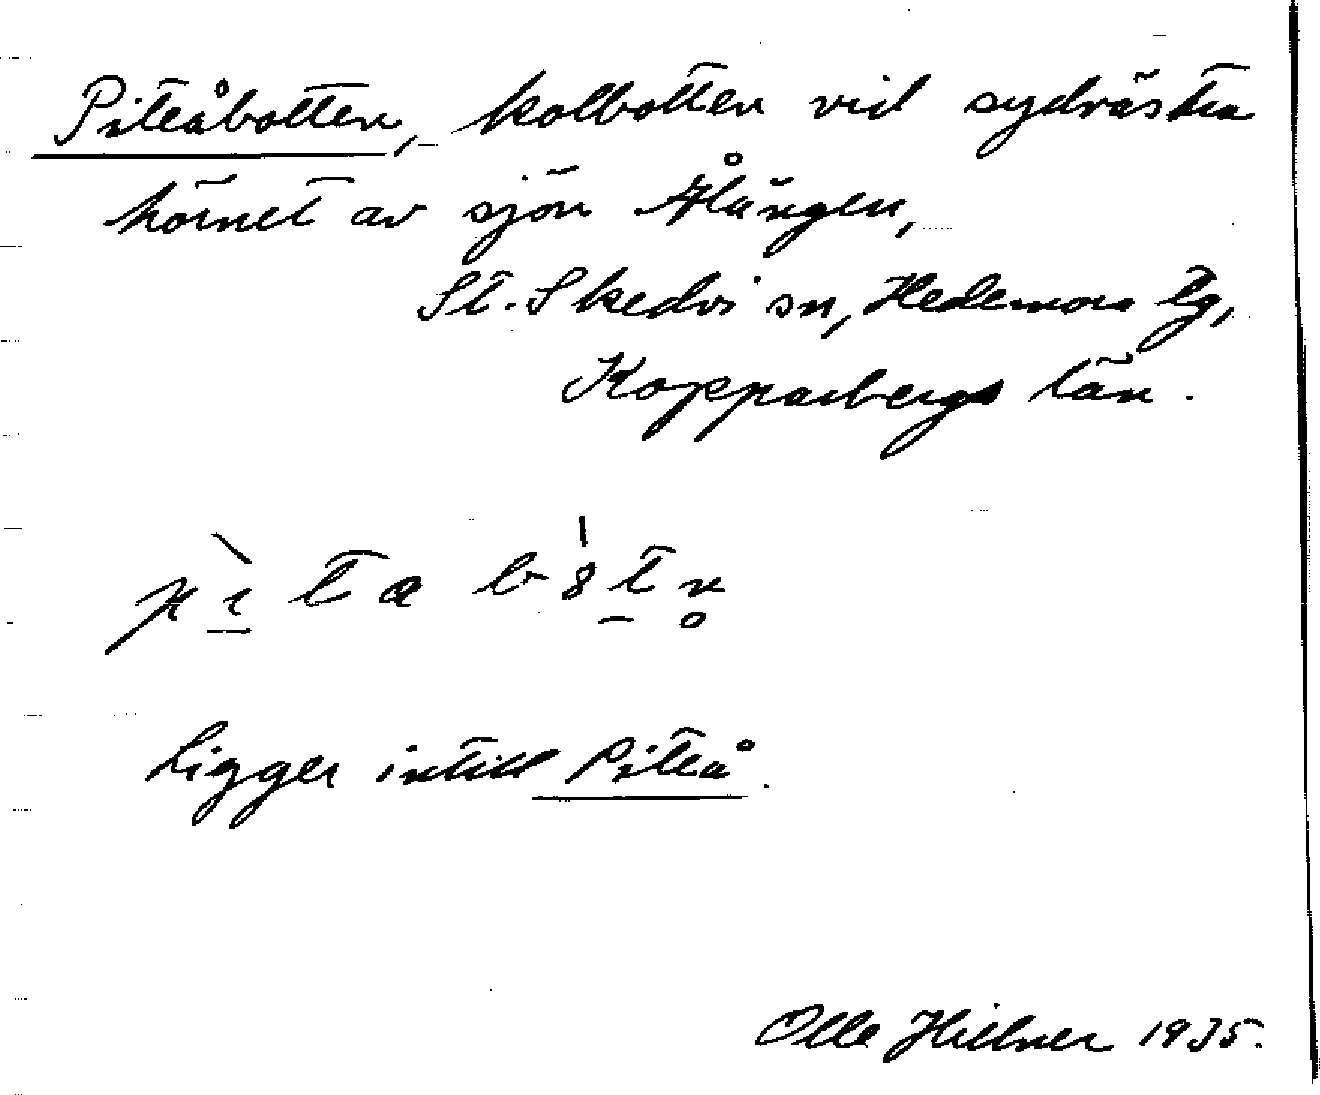 Piteåbotten, kolbotten vid sydvästra
hörnet av sjön Ålängen,
St. Skedvi sn, Hedemora tg,
Kopparbergs län.
Ligger intill Piteå.
Olle Hillner 1935.